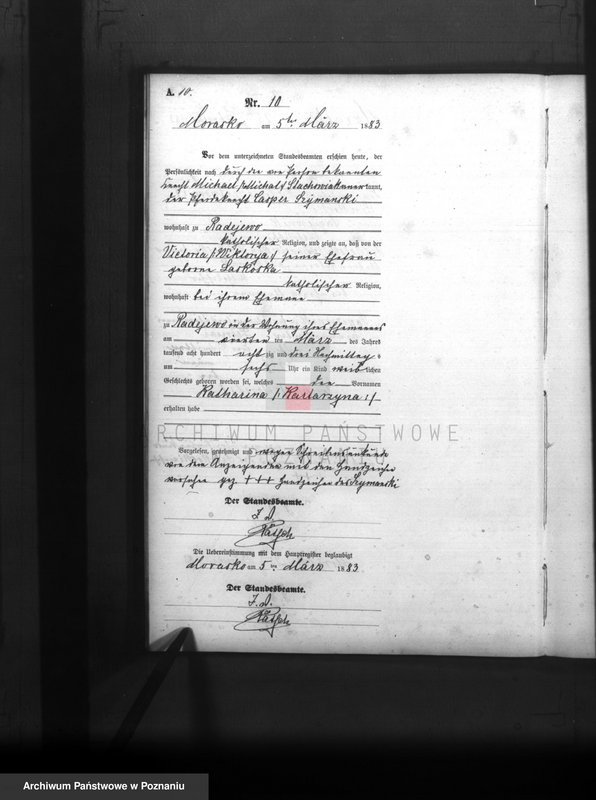 A. 10.
Nr. 10
Morasko am 5ten März 1883
Vor dem unterzeichneten Standesbeamten erschien heute, der
Persönlichkeit nach durch den von Person bekannten
Knecht Michael /: Michal :/ Stachowiak anerkannt,
der Pferdeknecht Casper Szymanski
wohnhaft zu Radojewo
katholischer Religion, und zeigte an, daß von der
Victoria /: Wiktorya :/ seiner Ehefrau
geborne
katholischer Religion,
wohnhaft bei ihrem Ehemann
zu Radojewo in der Wohnung ihres Ehemannes
am vierten ten März des Jahres
tausend acht hundert achtzig und drei Nachmittags
um sechs Uhr ein Kind weiblichen
Geschlechts geboren worden sei, welches den Vornamen
Katharina /: Kartarzyna :/
erhalten habe
ARCHIWUM PAŃSTWOWE
W POZNANIU
Vorgelesen, genehmigt und wegen Schreibensunkunde
von dem Anzeigenden mit den Handzeichen
versehen gez. +++ Handzeichen des Szymanski
Der Standesbeamte.
Die Uebereinstimmung mit dem Hauptregister beglaubigt
Morasko am 5ten März 1883.
Der Standesbeamte.
Archiwum Państwowe w Poznaniu